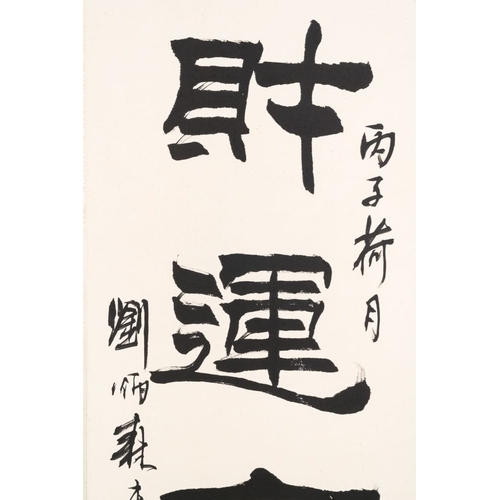 丙子荷月
財運
劉炳森